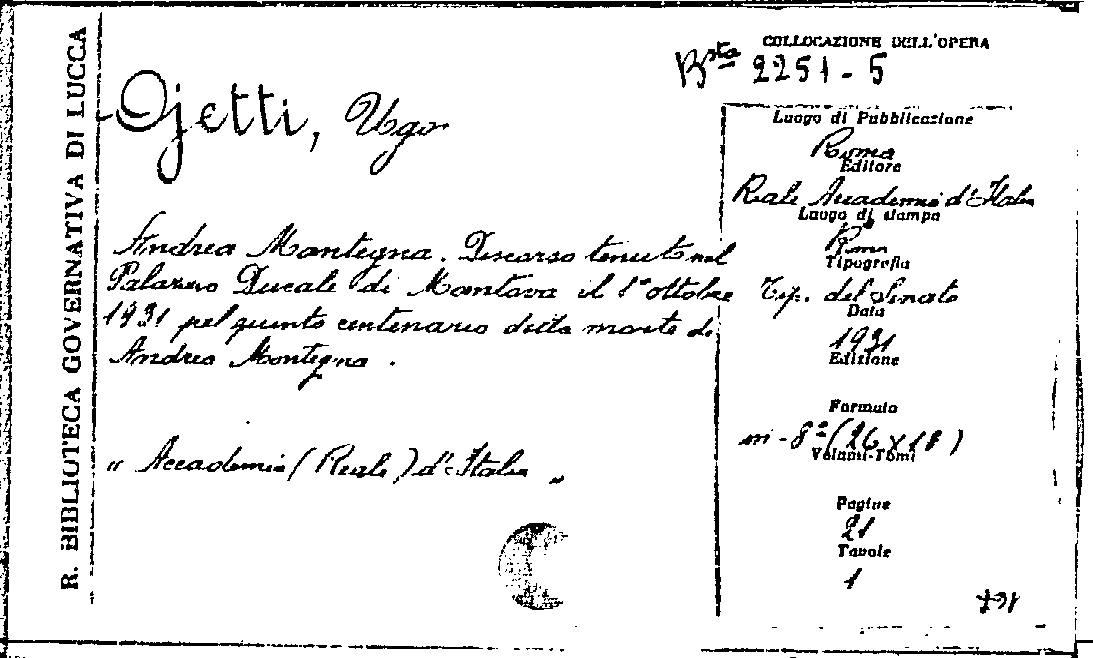 R. BIBLIOTECA GOVERNATIVA DI LUCCA
COLLOCAZIONE DELL'OPERA
Bsta 2251-5
Ojetti, Ugo
Andrea Mantegna. Discorso tenuto nel
Palazzo Ducale di Mantova il 1° ottobre
1931 pel quinto centenario della morte di
Andrea Mantegna.
"Accademia (Reale) d'Italia"
Luogo di Pubblicazione
Roma
Editore
Reale Accademia d'Italia
Luogo di stampa
Roma
Tipografia
Tip. del Senato
Data
1931
Edizione
Formato
in-8° (26 x 18)
Volumi-Tomi
Pagine
21
Tavole
1